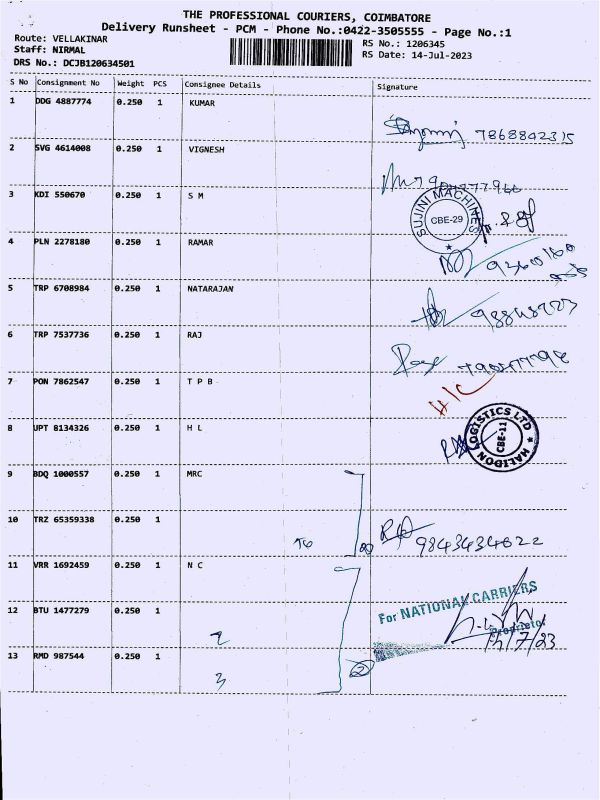 THE PROFESSIONAL COURIERS, COIMBATORE
Delivery Runsheet - PCM - Phone No.:0422-3505555 - Page No.:1
Route: VELLAKINAR
Staff: NIRMAL
DRS No.: DCJB120634501
RS No.: 1206345
RS Date: 14-Jul-2023
S No Consignment No Weight PCS Consignee Details Signature
1 DDG 4887774 0.250 1 KUMAR
7868842315
2 SVG 4614008 0.250 1 VIGNESH
3 KDI 550670 0.250 1 S M
SUJINI MACHINES CBE-29
4 PLN 2278180 0.250 1 RAMAR
5 TRP 6708984 0.250 1 NATARAJAN
6 TRP 7537736 0.250 1 RAJ
7 PON 7862547 0.250 1 T P B
H/C
8 UPT 8134326 0.250 1 H L
HALIDON LOGISTICS LTD CBE-11
9 BDQ 1000557 0.250 1 MRC
10 TRZ 65359338 0.250 1
9843434622
11 VRR 1692459 0.250 1 N C
For NATIONAL CARRIERS
12 BTU 1477279 0.250 1
2
Proprietor
13 RMD 987544 0.250 1
2
3